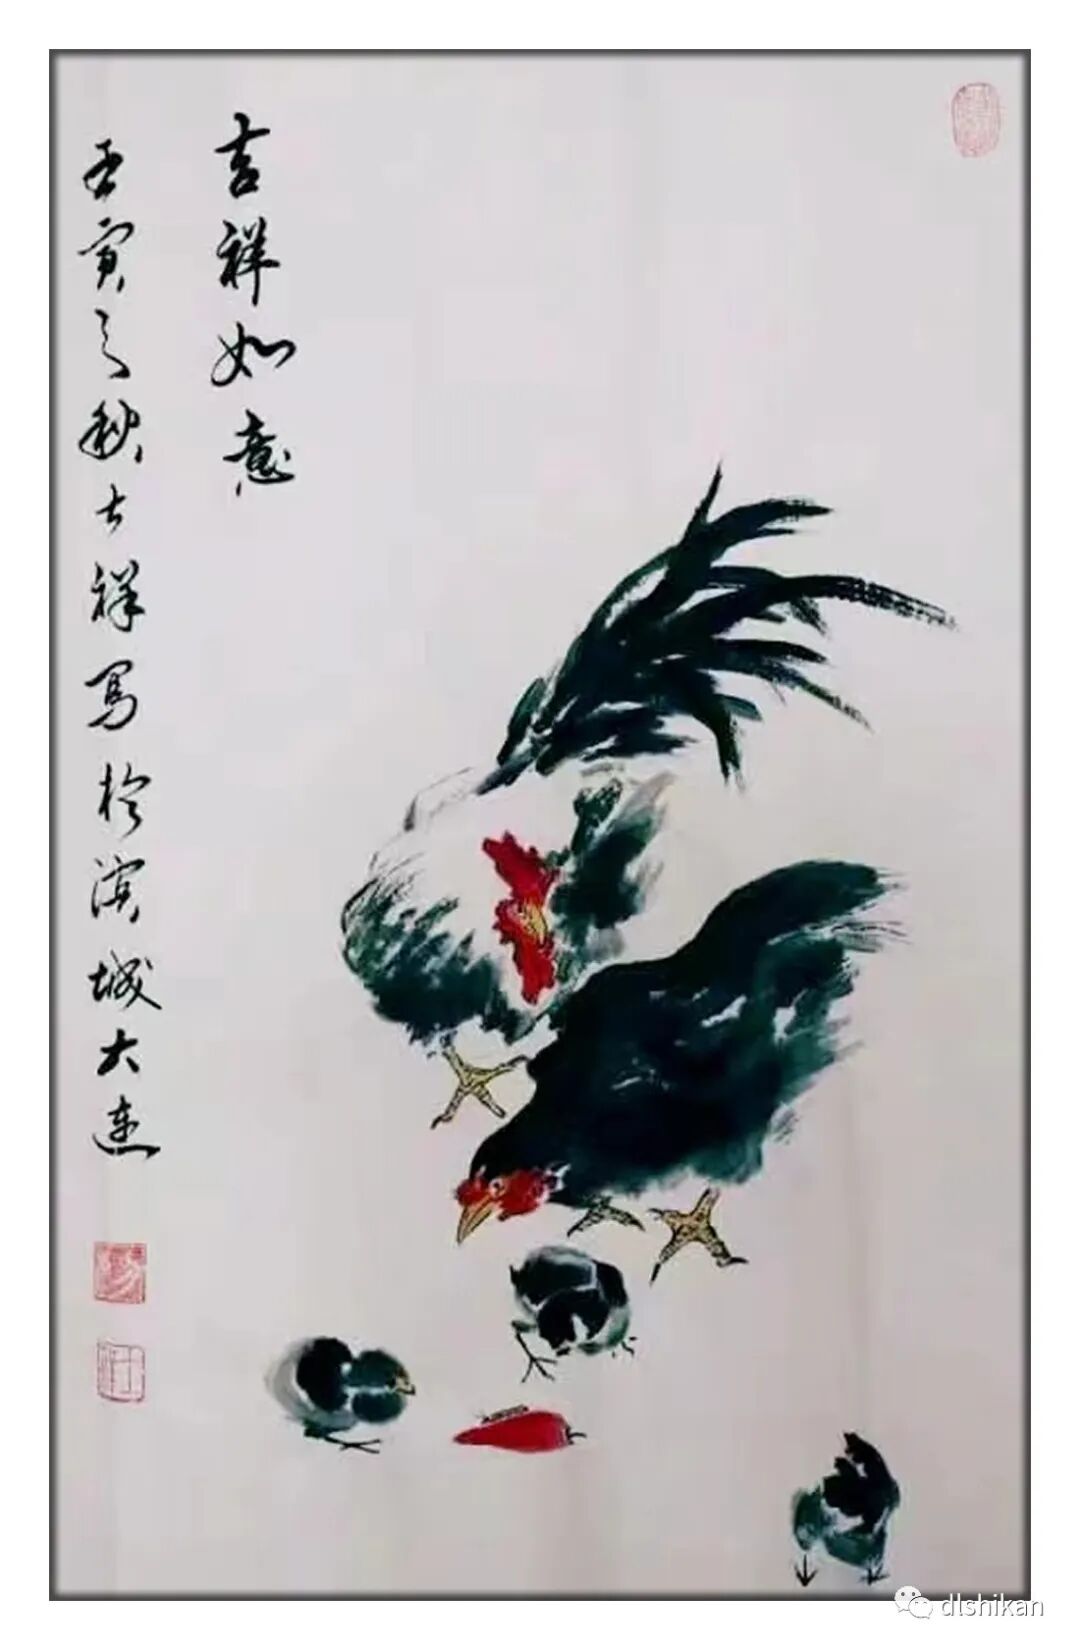 吉祥如意
壬寅之秋士祥写於滨城大连
dlshikan